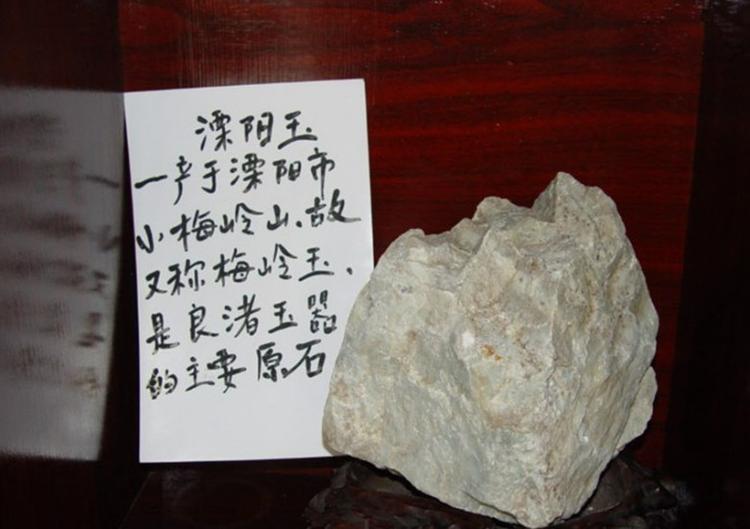 溧阳玉
一产于溧阳市
小梅岭山、故
又称梅岭玉、
是良渚玉器
的主要原石